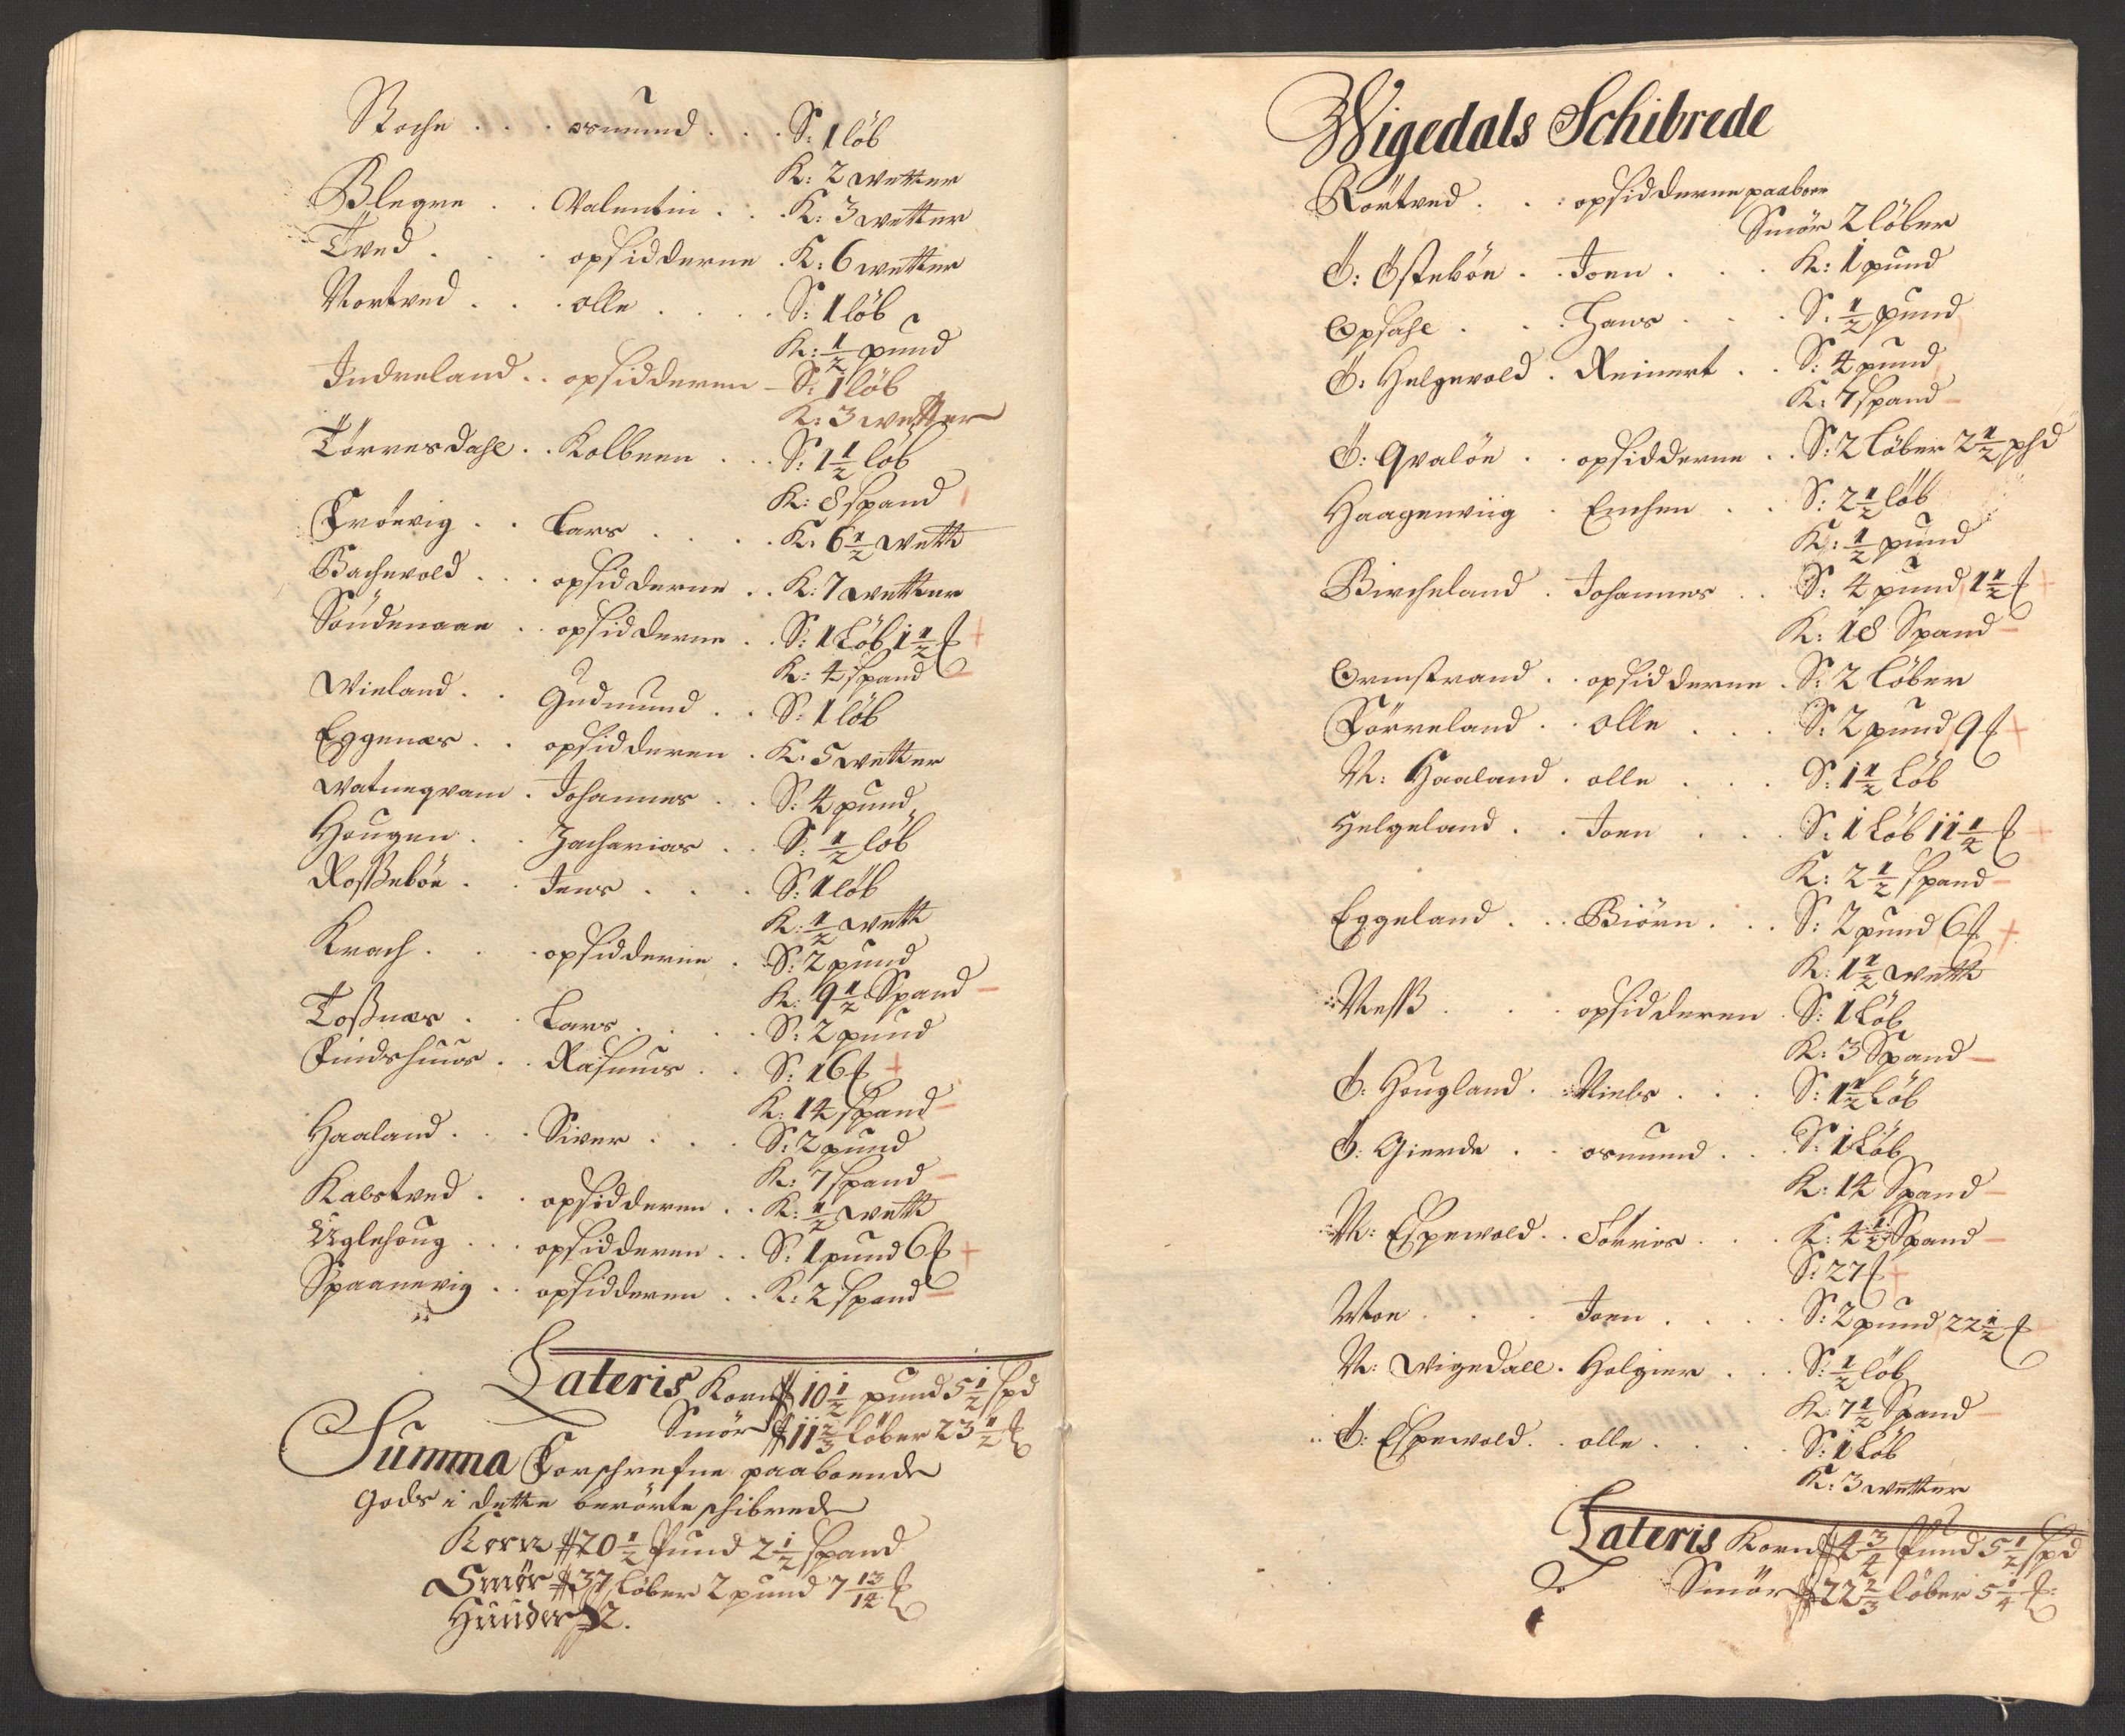 Stoche . . . osmund . . . S: 1 löb
K: 2 wetter
Blegen . . Valentin . . . K: 3 wetter
Tved . . . opsidderne . K: 6 wetter
Nortved . . . olle . . . . S: 1 löb
K: 1/2 pund
Indreland . . opsidderen - S: 1 löb
K: 3 wetter
Törresdahl . . Kolbeen . . . S: 1 1/2 löb
K: 8 spand
Frövig . . Lars . . . . K: 6 1/2 wett
Bachevold . . . opsidderne . . K: 7 wetter
Söndenaae . . opsidderne . . S: 1 Löb 1 1/2 ℔
K: 4 spand
Wieland . . Gudmund . . S: 1 löb
Eggenæs . . opsidderen . K: 5 wetter
Watneqvam . Johannes . . S: 4 pund
Hougen . . Zacharias . . S: 1/2 löb
Rosßebön . . Jens . . . S: 1 löb
K: 1/2 wett
Krach . . . opsidderne . S: 2 pund
K: 9 1/2 Spand
Toßnæs . . Lars . . . . S: 2 pund
Findshuus . . Rasmus . . S: 16 ℔
K: 14 spand
Haaland . . . Siver . . . S: 2 pund
K: 7 spand
Kalstved . . opsidderen . . K: 1/2 wett
Uglehoug . . . opsidderen . . S: 1 pund 6 ℔
Spaanevig . . opsidderen . . K: 2 spand
Lateris Korn 10 1/2 pund 5 1/2 spd
Smör 11 2/3 löber 23 1/2 ℔
Summa Forschrefne paaboende
Gods i dette berörte schibrede
Korn 20 1/2 Pund 2 1/2 spand
Smör 37 löber 2 pund 7 13/14 ℔
Huuder 2.
Wigedals Schibrede
Rörtved . . : opsidderne paaboer
Smör 2 löber
Ö: Östebön . . Joen . . . K: 1 pund
Opsahl . . . Hans . . . S: 1/2 pund
Ö: Helgevold . Reinert . . S: 4 pund
K: 7 spand
Ö: Qvalön . . opsidderne . . S: 2 löber 2 1/2 phd
Haagenviig . Enchen . . S: 2 1/2 löb
K: 1/2 pund
Bircheland . Johannes . . S: 4 pund 1 1/2 ℔
K: 18 Spand
Ormstrand . . opsidderne . S: 2 löber
Förreland . . olle . . . S: 2 pund 9 ℔
N: Haaland . olle . . . S: 1 1/2 Löb
Helgeland . . Joen . . . S: 1 Löb 11 1/4 ℔
K: 2 1/2 spand
Eggeland . . . Biörn . . . S: 2 pund 6 ℔
K: 1 1/2 wett
Neß . . . opsidderen . S: 1 Löb
K: 3 Spand
Ö: Hougland . . Niels . . . S: 1 1/2 Löb
Ö: Gierde . . osmund . . . S: 1 Löb
K: 14 Spand
N: Espevold . . Torrios . . . K: 4 1/2 Spand
S: 27 ℔
Moe . . . Joen . . . . S: 2 pund 22 1/2 ℔
N: Wigedall . Holgier . . . S: 1/2 löb
K: 7 1/2 Spand
Ö: Espevold . . olle . . . . S: 1 Löb
K: 3 wetter
Lateris Korn 4 3/4 Pund 5 1/2 spd
Smör 22 2/3 löber 5 1/4 ℔